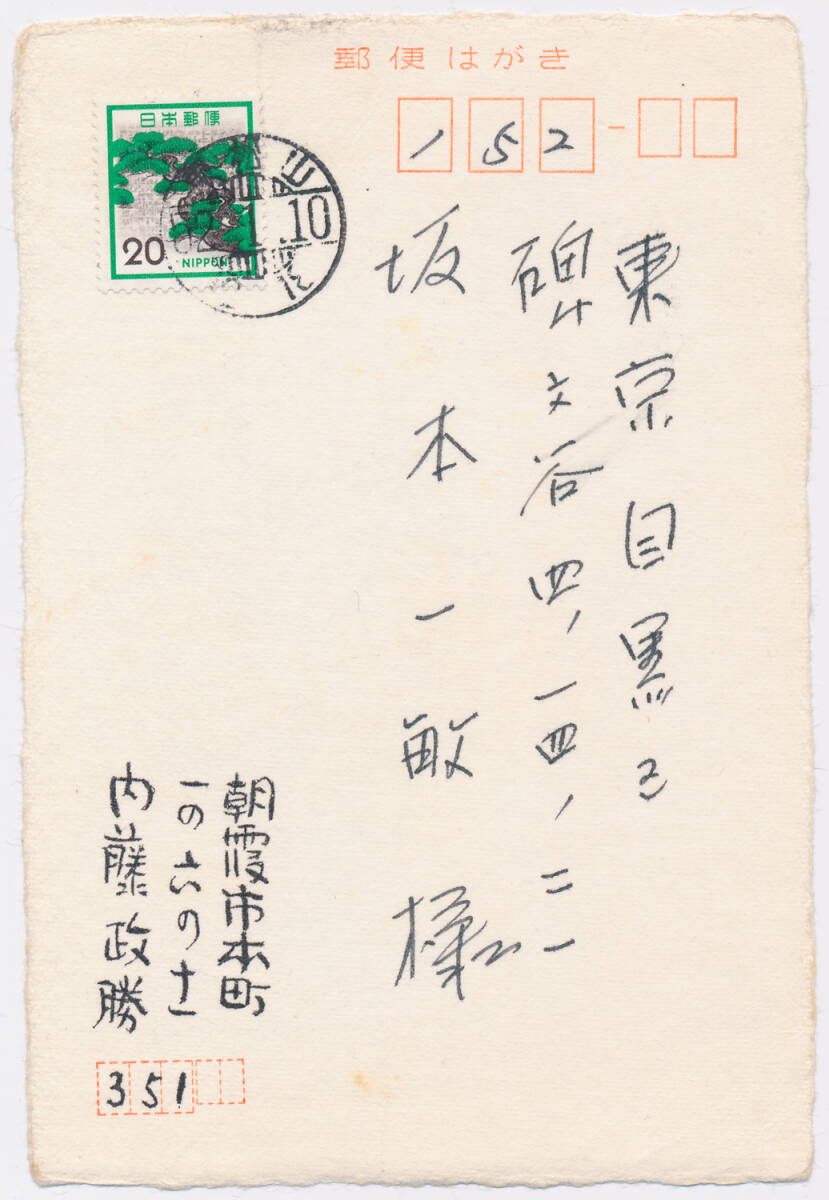 郵便はがき
日本郵便
20
NIPPON
山
10
152
東京目黒区
碑文谷四、一四、二一
坂本一敏様
朝霞市本町
一の六の十一
内藤政勝
351